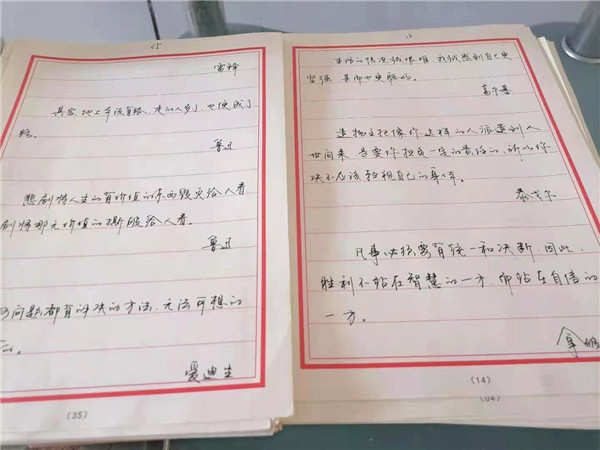 雷锋
其实地上本没有路,走的人多了,也便成了
路。
鲁迅
悲剧将人生的有价值的东西毁灭给人看
剧将那无价值的撕破给人看。
鲁迅
问题都有解决的方法,无法可想的
爱迪生
(35)
生活的情况越艰难,我越感到自己更
坚强,甚而也更聪明。
高尔基
造物主把像你这样的人派遣到人
世间来,是要你担负一定的责任的,所以你
决不应该轻视自己的身体。
泰戈尔
凡事必须要有统一和决断,因此,
胜利不站在智慧的一方,而站在自信的
一方。
拿破
(14)